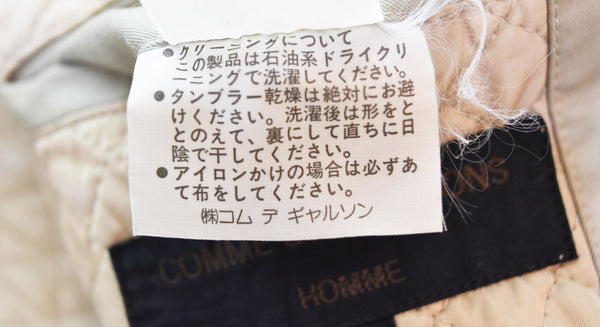 ●クリーニングについて
この製品は石油系ドライクリ
ーニングで洗濯してください。
●タンブラー乾燥は絶対にお避
けください。洗濯後は形をと
とのえて、裏にして直ちに日
陰で干してください。
●アイロンかけの場合は必ずあ
て布をしてください。
㈱コム デ ギャルソン
COMME
ONS
HOMME